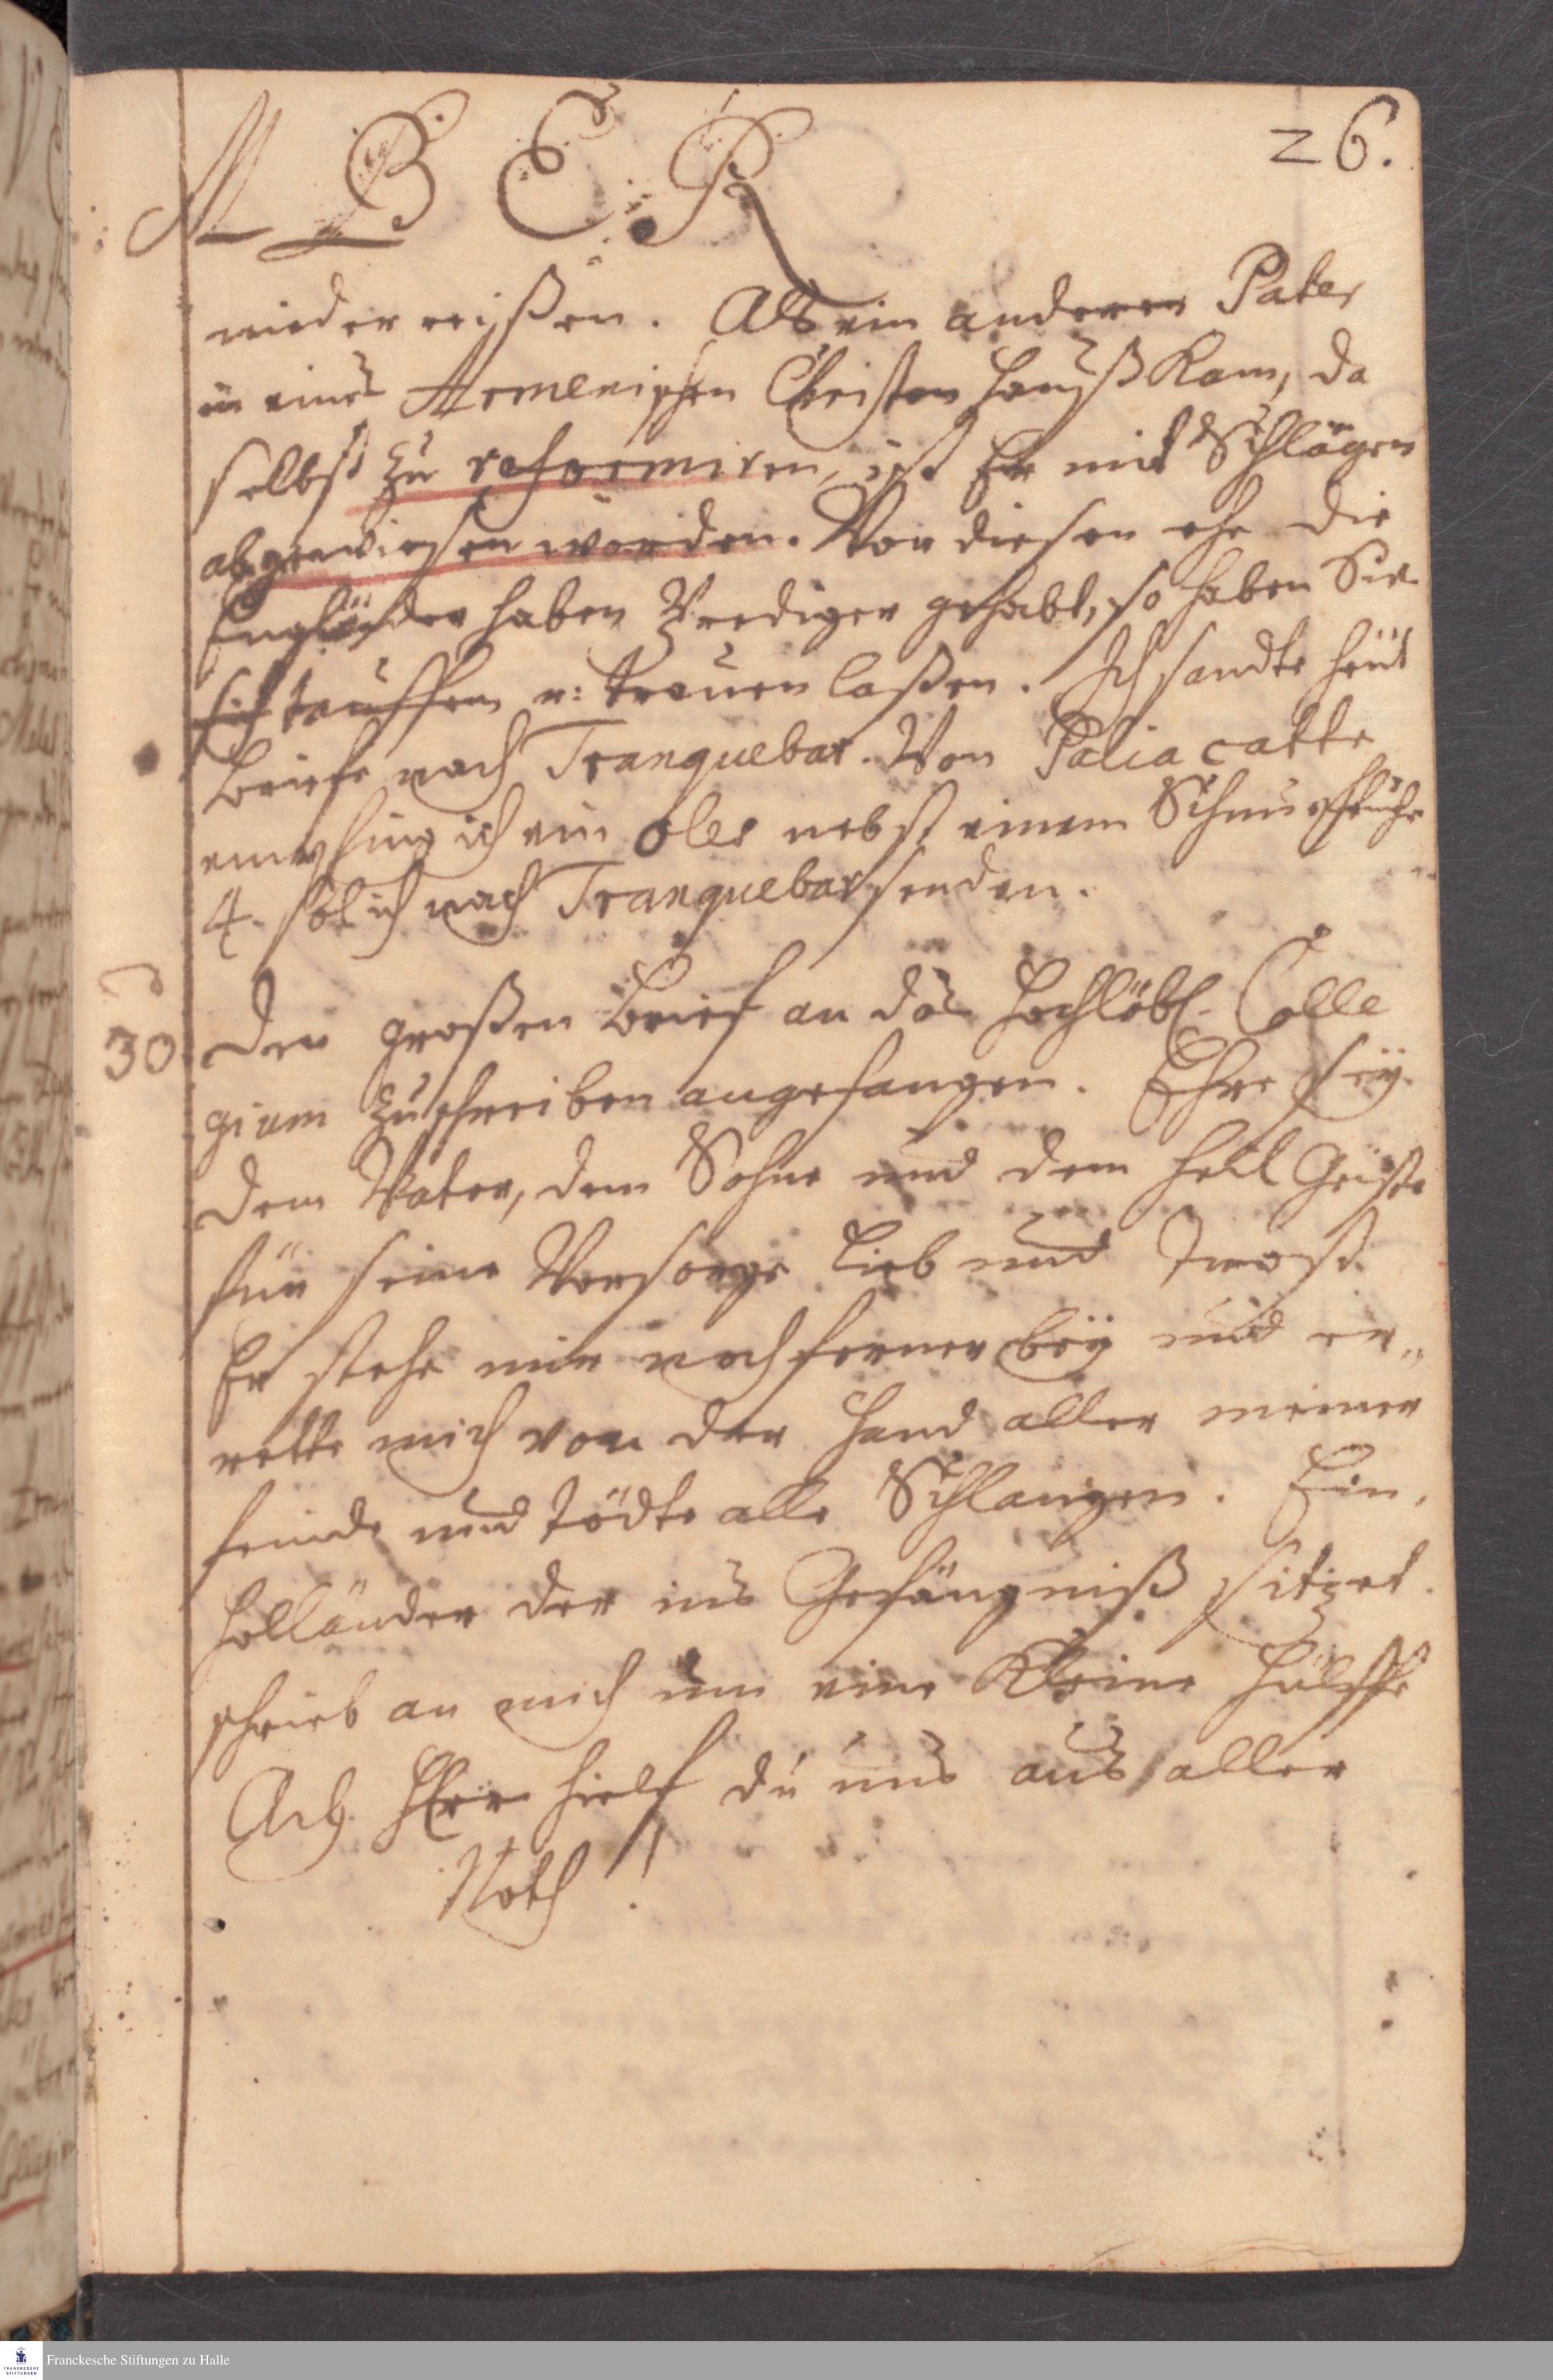 M B E R
26.
niederreißen. Als ein anderer Pater
in eines Armenischen Christen Hauß kam, da
selbst zu reformiren, ist Er mit Schlägen
abgewiesen worden. Vor diesen ehe die
Engländer haben Prediger gehabt, so haben Sie
sich tauffen u: trauen laßen. Ich sandte heut
Briefe nach Tranquebar. Von Paliacatte
empfing ich ein oles nebst einem
4. sol ich nach Tranquebar senden.
30 Den großen Brief an das Hochlöbl. Colle
gium zuschreiben angefangen. Ehre seÿ
dem Vater, dem Sohne und dem Heil Geiste
für seine Vorsorge Lieb und Trost.
Er stehe mir noch ferner beÿ und er„
rette mich von der Hand aller meiner
feinde und tödte alle Schlangen. Ein
Holländer der ins Gefängniß sitzet
schrieb an mich um eine Kleine Hülffe
Ach HErr hielf du uns aus aller
Noth!
Franckesche Stiftungen zu Halle